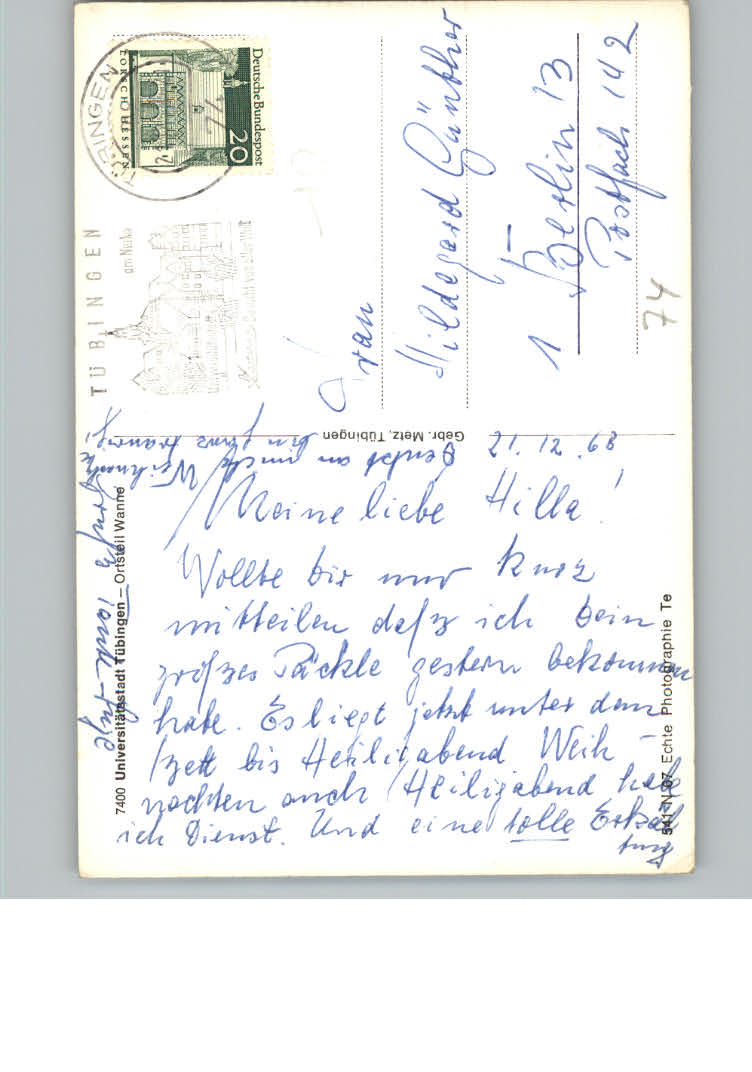 21.12.68
Meine liebe Hilla!
Wollte dir nur kurz
mitteilen daß ich Dein
großes Päckle gestern bekommen
habe. Es liegt jetzt unter dem
bett bis Heiligabend Weih-
nachten auch Heiligabend hab
ich Dienst. Und eine tolle Erkäl
tung
Denkt an mich
Weihnacht
bin ganz traurig!
Gruß Tante
Frau
Hildegard Günther
1 Berlin 13
Postfach 142
74
Deutsche Bundespost
20
LORSCH/HESSEN
TÜBINGEN
TÜBINGEN
am Neckar
Gebr. Metz, Tübingen
7400 Universitätsstadt Tübingen – Ortsteil Wanne
Echte Photographie Te